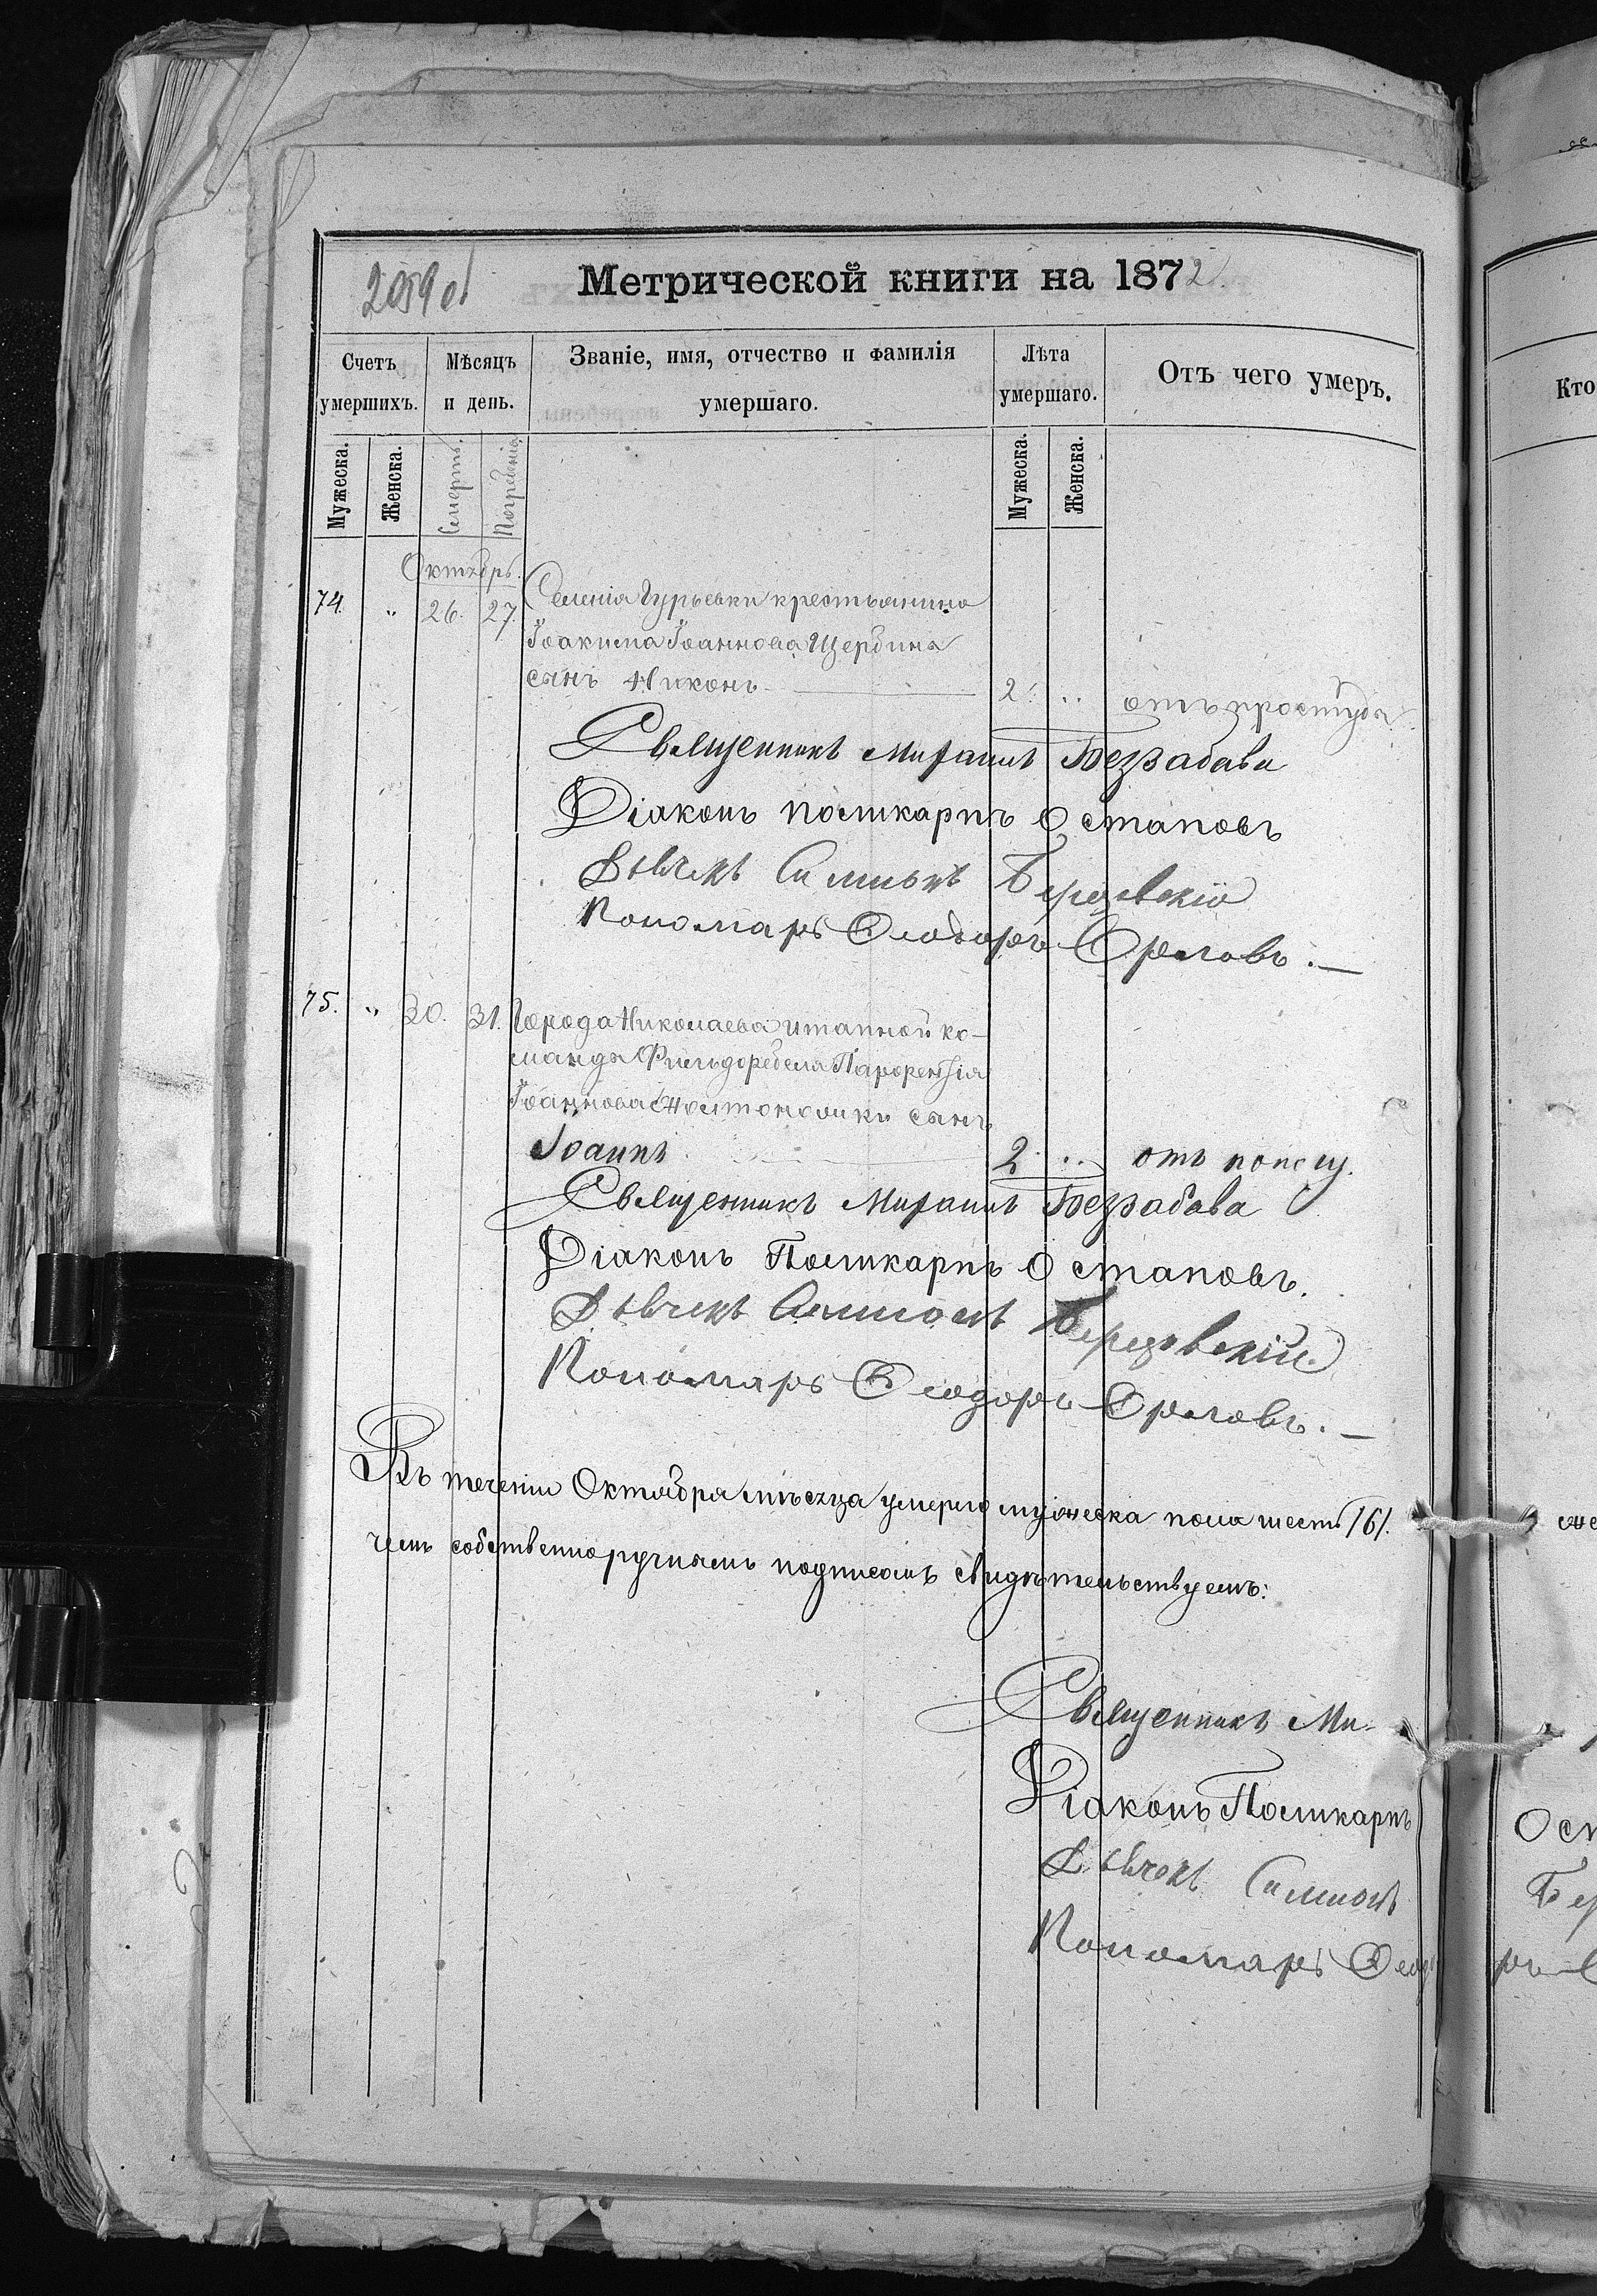 Метрической книги на 1872.
Счетъ умершихъ.
Мѣсяцъ и день.
Званіе, имя, отчество и фамилія умершаго.
Лѣта умершаго.
Отъ чего умеръ.
Кто
Мужеска.
Женска.
Смерть.
Погребенія.
Мужеска.
Женска.
Октябрь.
74. " 26. 27. Селенія Гурьевки крестьянина
Іоакима Іоаннова Щербина
сынъ Никонъ 2. " отъ простуды
Священникъ Михаилъ Безрабава
Діаконъ Поликарпъ Остаповъ
Дьячекъ Симеонъ Березовскій
Пономарь Ѳеодоръ Орловъ.—
75. " 30. 31. Города Николаева штатной ко-
манды Фельдфебеля
Іоаннова сынъ
Іоаннъ 2. " отъ поносу.
Священникъ Михаилъ Безрабава
Діаконъ Поликарпъ Остаповъ.
Дьячекъ Симеонъ Березовскій
Пономарь Ѳеодоръ Орловъ.—
Въ теченіи Октября мѣсяца умерло мужеска пола шесть /6/.
чемъ собственноручнымъ подписомъ свидѣтельствуемъ:
Священникъ Ми-
Діаконъ Поликарпъ
Ост
Дьячекъ Симеонъ
Бер
Пономарь Ѳеодо
ръ